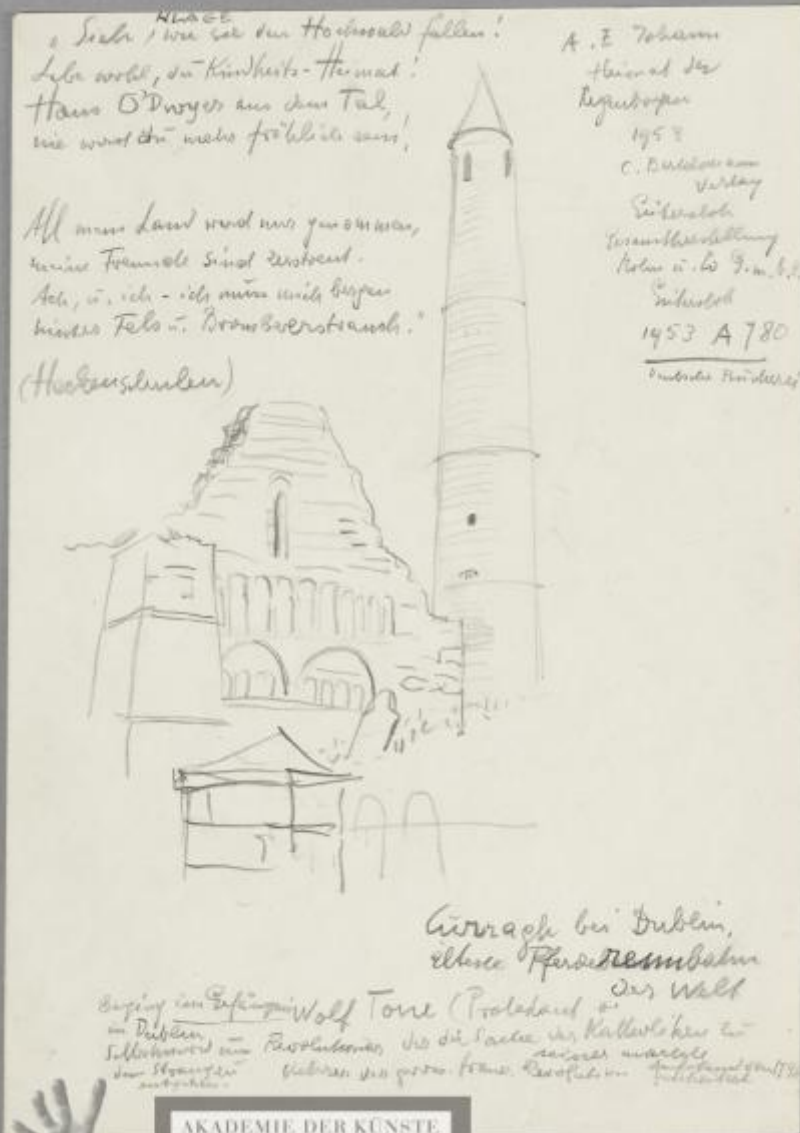 KLAGE
„Sieh, wie sie den Hochwald fällen!
Lebe wohl, du Kindheits-Heimat!
Hans O'Dwyer aus dem Tal,
nie wirst du mehr fröhlich sein!
All mein Land ward mir genommen,
meine Freunde sind zerstreut.
Ach, u. ich - ich muss mich bergen
hinter Fels u. Brombeerstrauch."
(Heckenschulen)
A. E Johann
Heimat der
Regenbogen
1953
C. Bertelsmann
Verlag
Gütersloh
Gesamtherstellung
Mohn u. Co G.m.b.H.
Gütersloh
1953 A 780
Deutsche Bücherei
Curragh bei Dublin,
älteste Pferderennbahn
der Welt
beging im Gefängnis Wolf Tone (Protestant
in Dublin
Selbstmord um Revolutionär der die Sache der Katholiken zu
seiner machte
dem Strang zu
entgehen.
der franz. Revolution
AKADEMIE DER KÜNSTE